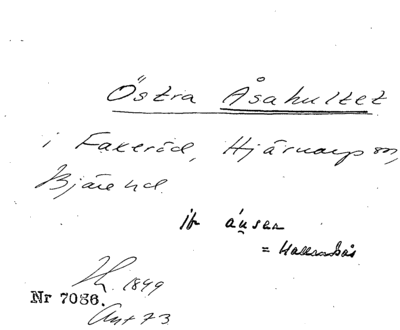 Östra Åsahultet
i Faxeröd, Hjärnarp sn,
Bjäre hd.
jfr åusen
= Hallandsås
1849
Nr 7086.
Ant 73